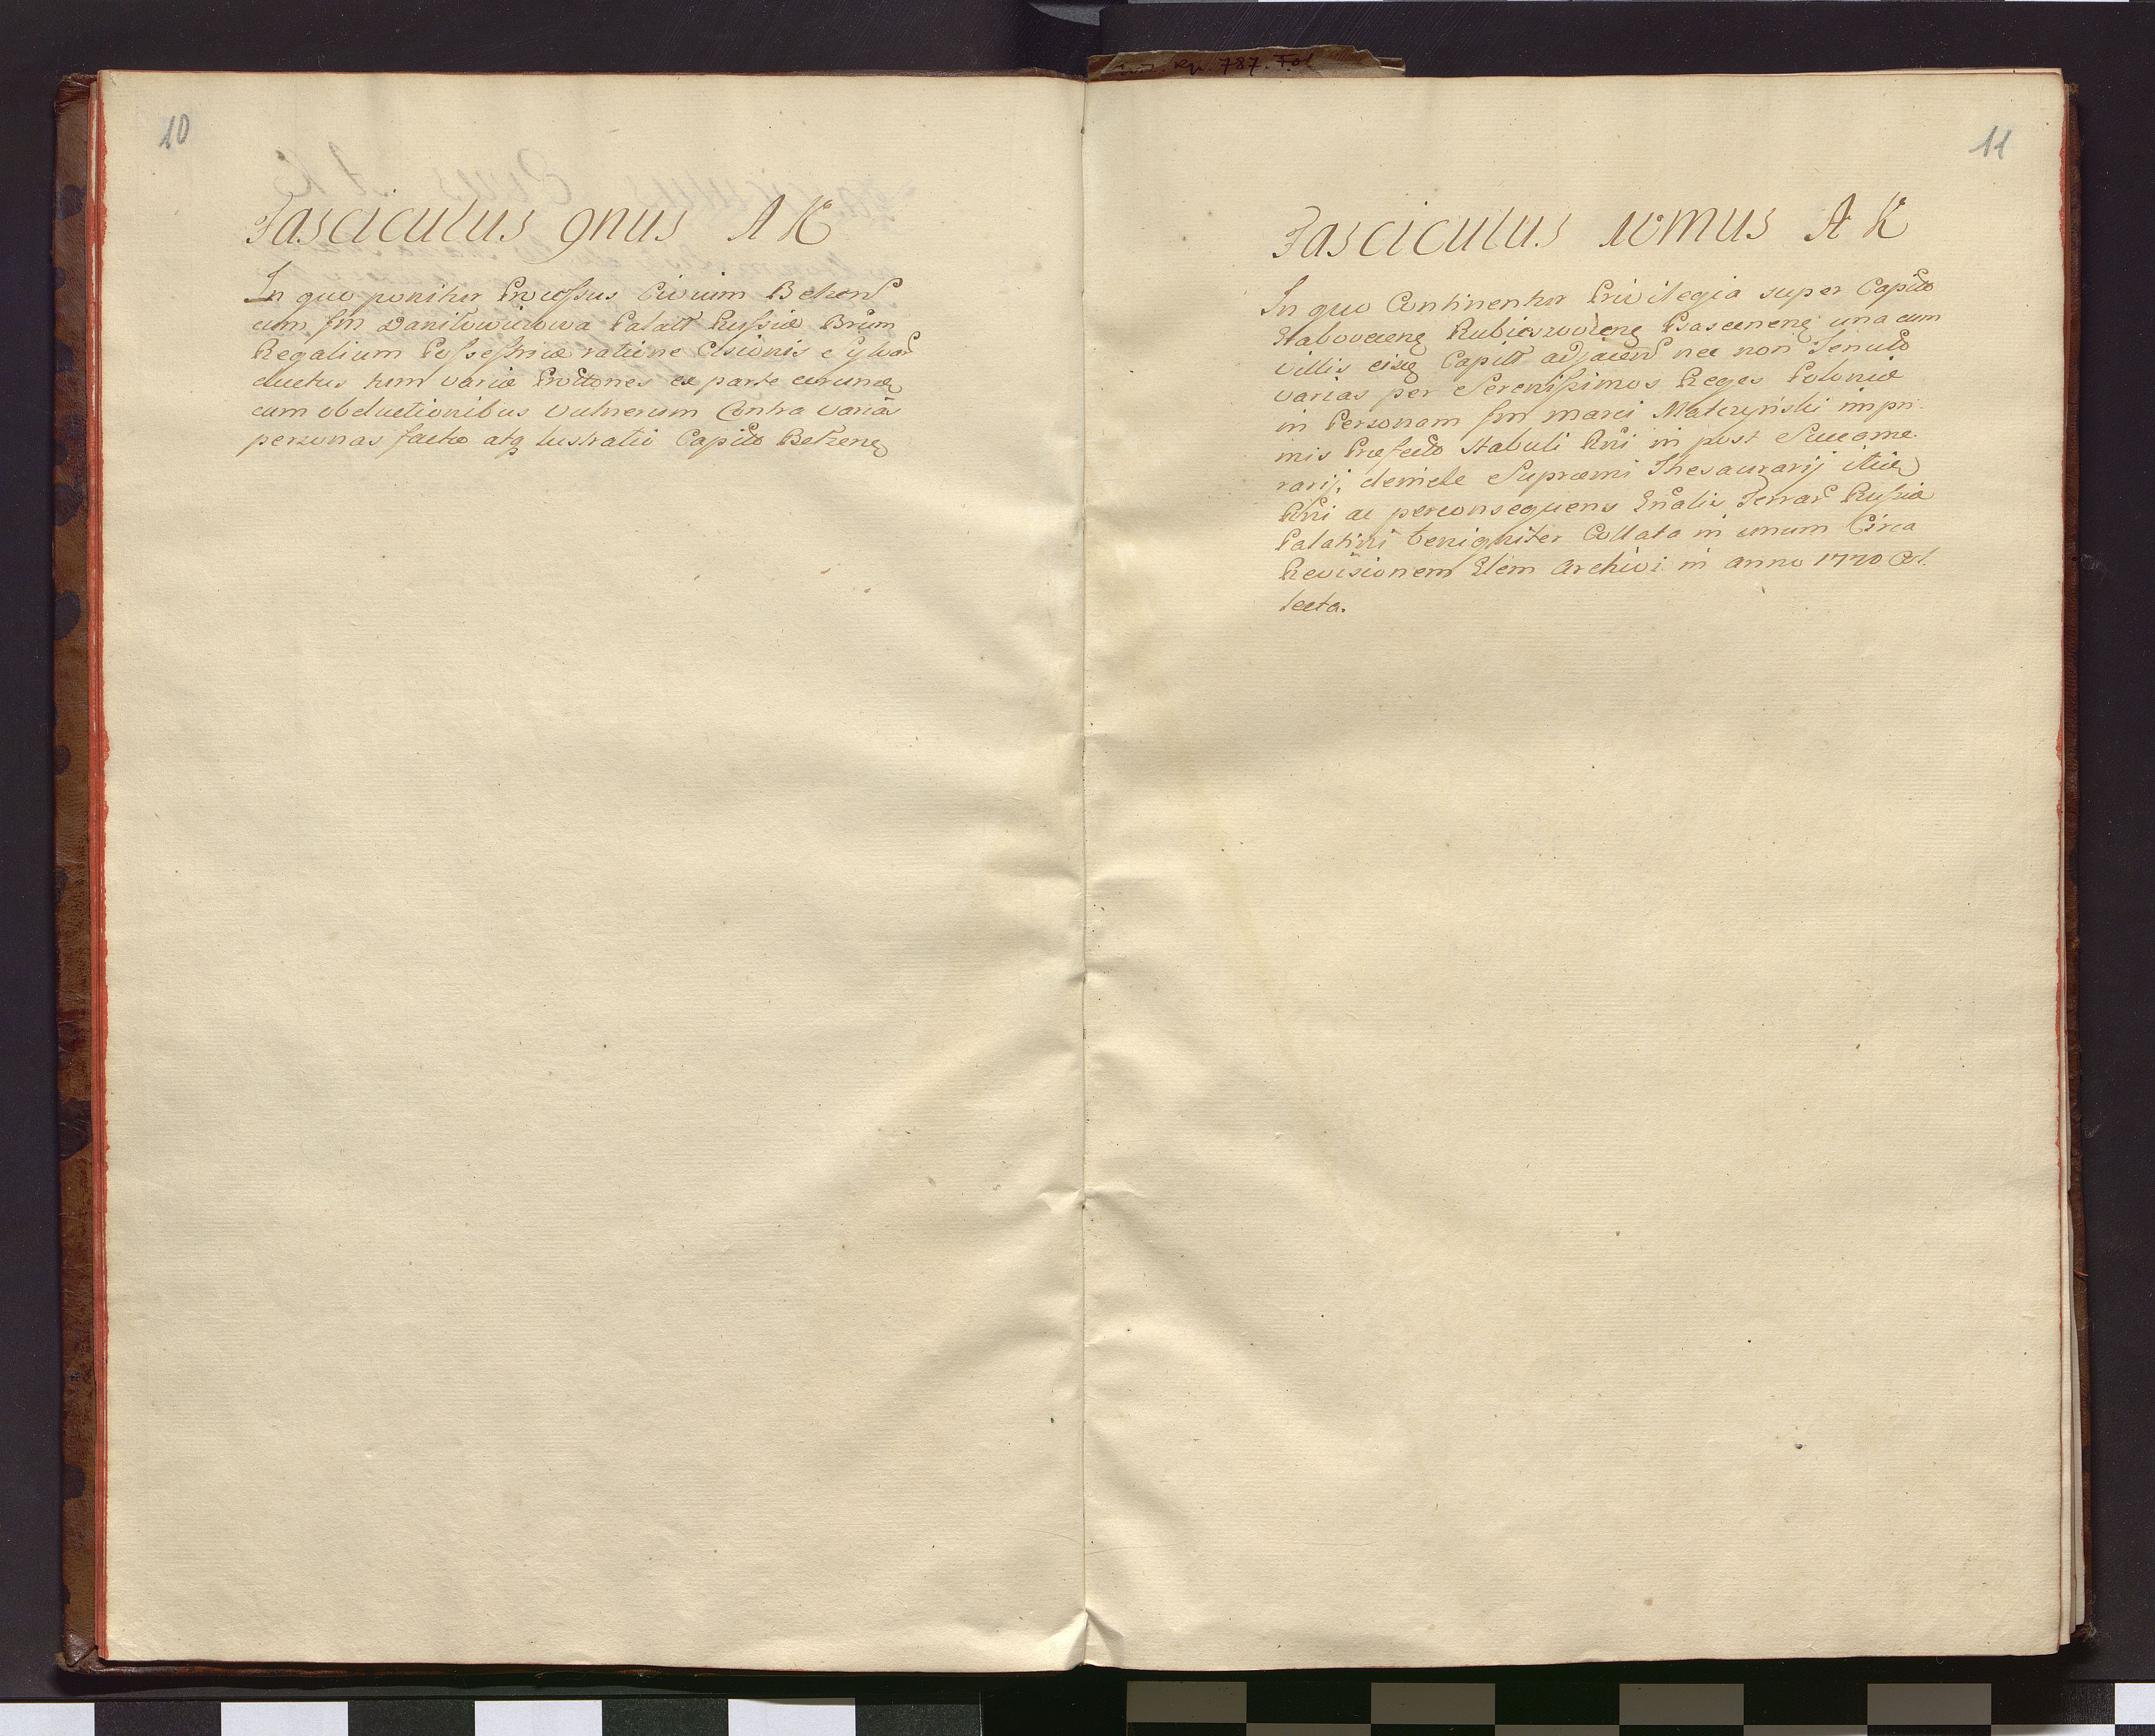 10
Fasciculus 9nus A K
In quo ponitur Processus Civium Belzens
cum Danilowiczowa Palatt Russiæ Brum
Regalium Possessrice ratione Cisionis Sylvar
ductus tum variæ Prottones ex parte earundē
cum obductionibus vulnerum Contra varias
personas factæ atq lustratio Capitō Belzenę
Rp. 787. Fol
11
Fasciculus 10mus A K
In quo Continentur Privilegia super Capito
una cum
villis Capitt adjacens nec non Tenuto
varias per Serenissimos Reges Poloniæ
in Personam Marci Matczyński impri
mis Præfecto Stabuli Rni in post Succame
rarij, deinde Supræmi Thesaurarij
Rni ac perconsequens Gnalis Terrar Russiæ
Palatini benigniter Collata in unum Circa
Revisionem Archivi in anno 1770 Col
lecta.